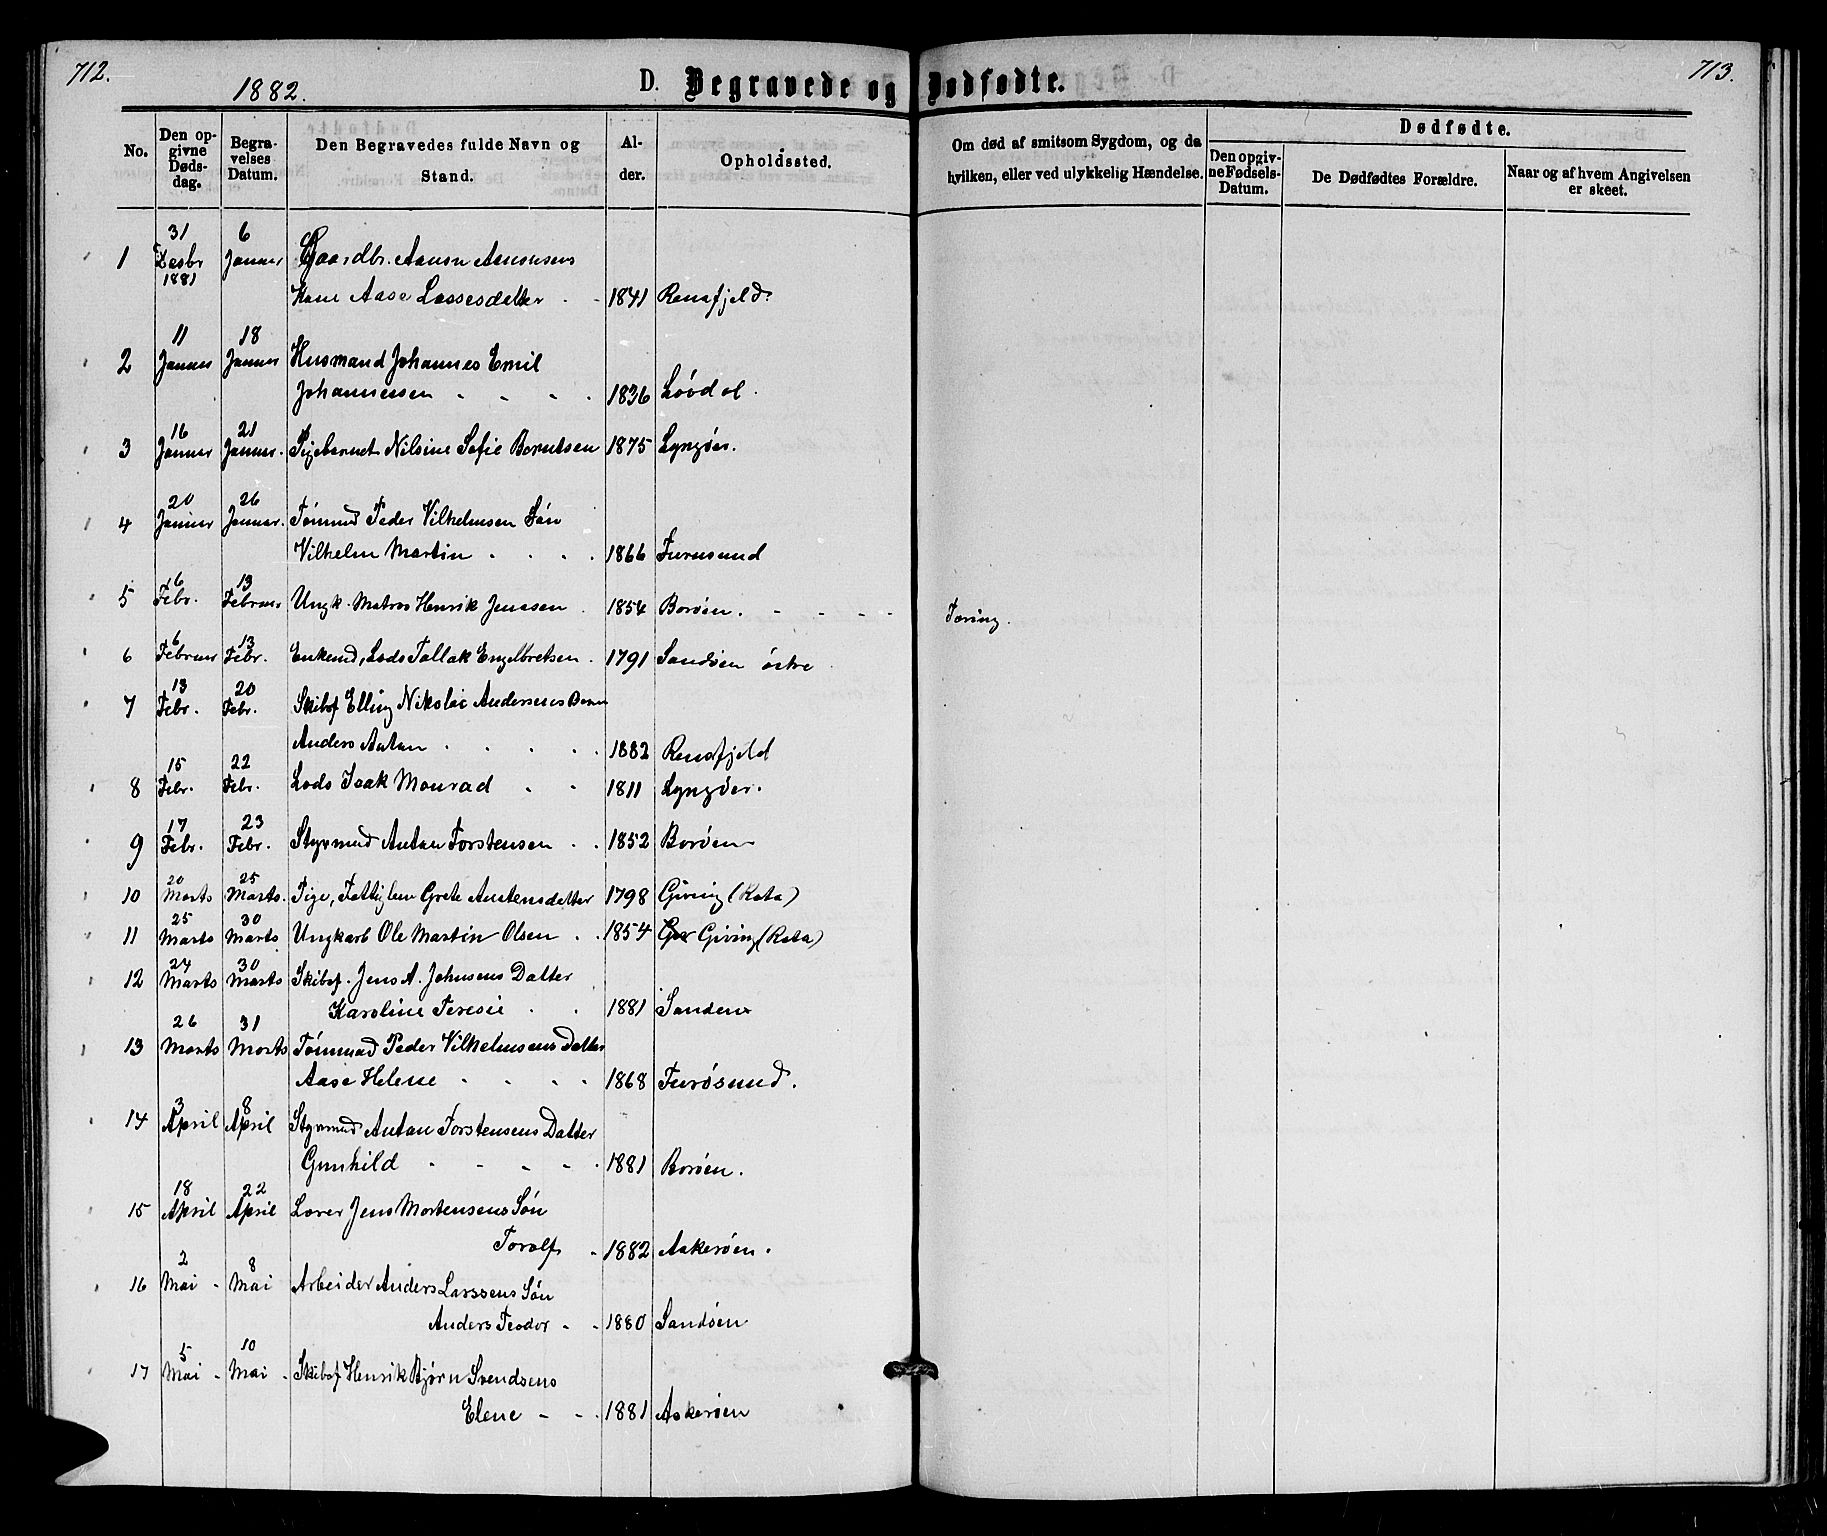 712.
1882.
D. Begravede og Dødfødte.
713.
No.
Den op-
givne
Døds-
dag.
Begra-
velses
Datum.
Den Begravedes fulde Navn og
Stand.
Al-
der.
Opholdssted.
Om død af smitsom Sygdom, og da
hvilken, eller ved ulykkelig Hændelse.
Dødfødte.
Den opgiv-
ne Fødsels-
Datum.
De Dødfødtes Forældre.
Naar og af hvem Angivelsen
er skeet.
31 6
1 Desbr Januar Gaardbr. Aanon Aanonsens
1881
Kone Aase Lassesdatter 1841 Rensfjeld.
11 18
2 Januar Januar Husmand Johannes Emil
Johannessen 1836 Løvdal.
16 21
3 Januar Januar. Pigebarnet Nilsine Sofie Berntsen 1875 Lyngøer.
20 26
4 Januar Januar. Tømmd Peder Vilhelmsen Søn
Vilhelm Martin 1866 Furøsund
6 13
5 Febr. Februar Ungk. Matros Henrik Jenssen 1854 Borøen. Tæring.
6 13
6 Februar Febr. Enkemd, Lods Tallak Engelbretsen 1791 Sandøen østre
13 20
7 Febr. Febr. Skibsf Elling Nikolai Andersens Barn
Anders Antan 1882 Rensfjeld
15 22
8 Febr. Febr. Lods Isak Monrad 1811 Lyngøer.
17 23
9 Febr. Febr. Styrmd Antan Torstensen 1852 Borøen
20 25
10 Marts Marts. Pige, Fattiglem Grete Austensdatter 1798 Giving (Kata)
25 30
11 Marts Marts Ungkarl Ole Martin Olsen 1854 Giving (Rota)
24 30
12 Marts Marts Skibsf. Jens A. Johnsens Datter
Karoline Teresie 1881 Sandøen
26 31
13 Marts Marts Tømmd Peder Vilhelmsens Datter
Aase Helene 1868 Furøsund.
3 8
14 April April Styrmd Antan Torstensens Datter
Gunhild 1881 Borøen.
18 22
15 April April Lærer Jens Mortensens Søn
Toralf 1882 Askerøen.
2 8
16 Mai Mai Arbeider Anders Larssens Søn
Anders Teodor 1880 Sandøen
5 10
17 Mai Mai Skibsf Henrik Bjørn Svendsens
Elene 1881 Askerøen